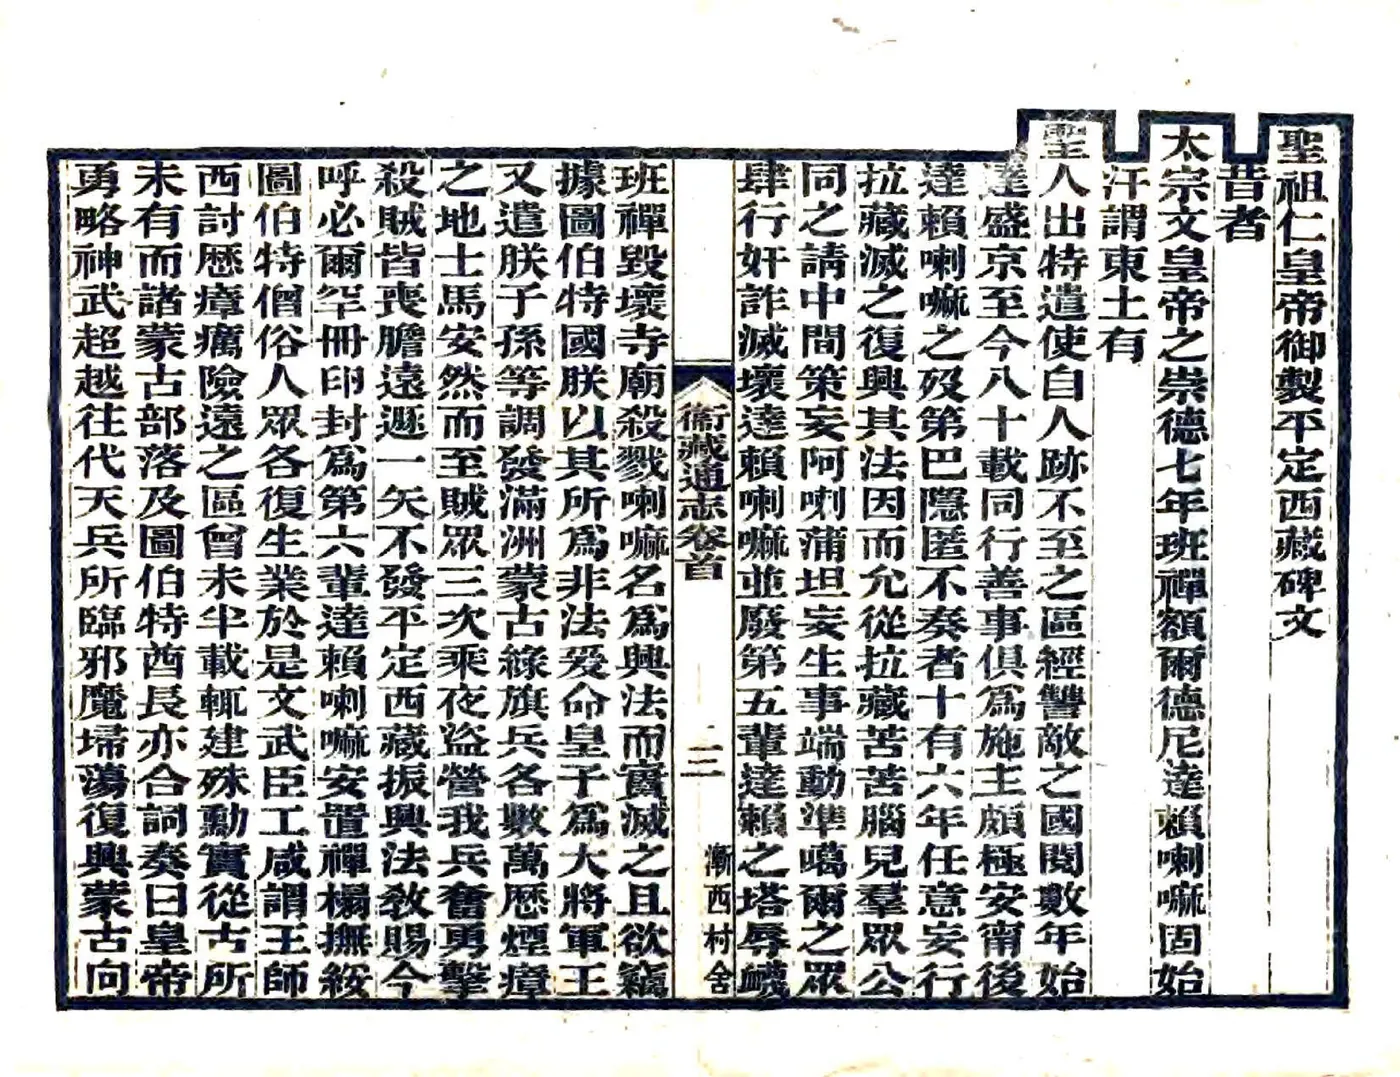 聖祖仁皇帝御製平定西藏碑文
昔者
太宗文皇帝之崇德七年班禪額爾德尼達賴喇嘛固始
汗謂東土有
聖人出特遣使自人跡不至之區經讐敵之國閱數年始
達盛京至今八十載同行善事俱爲施主頗極安甯後
達賴喇嘛之歿第巴隱匿不奏者十有六年任意妄行
拉藏滅之復興其法因而允從拉藏苦苦腦兒羣眾公
同之請中間策妄阿喇蒲坦妄生事端動準噶爾之眾
肆行奸詐滅壞達賴喇嘛並廢第五輩達賴之塔辱衊
衞藏通志卷首
三
漸西村舍
班禪毀壞寺廟殺戮喇嘛名爲興法而實滅之且欲竊
據圖伯特國朕以其所爲非法爰命皇子爲大將軍王
又遣朕子孫等調發滿洲蒙古綠旗兵各數萬歷煙瘴
之地士馬安然而至賊眾三次乘夜盜營我兵奮勇擊
殺賊皆喪膽遠遯一矢不發平定西藏振興法教賜今
呼必爾罕冊印封爲第六輩達賴喇嘛安置禪榻撫綏
圖伯特僧俗人眾各復生業於是文武臣工咸謂王師
西討歷瘴癘險遠之區曾未半載輒建殊勳實從古所
未有而諸蒙古部落及圖伯特酋長亦合詞奏曰皇帝
勇略神武超越往代天兵所臨邪魔埽蕩復興蒙古向